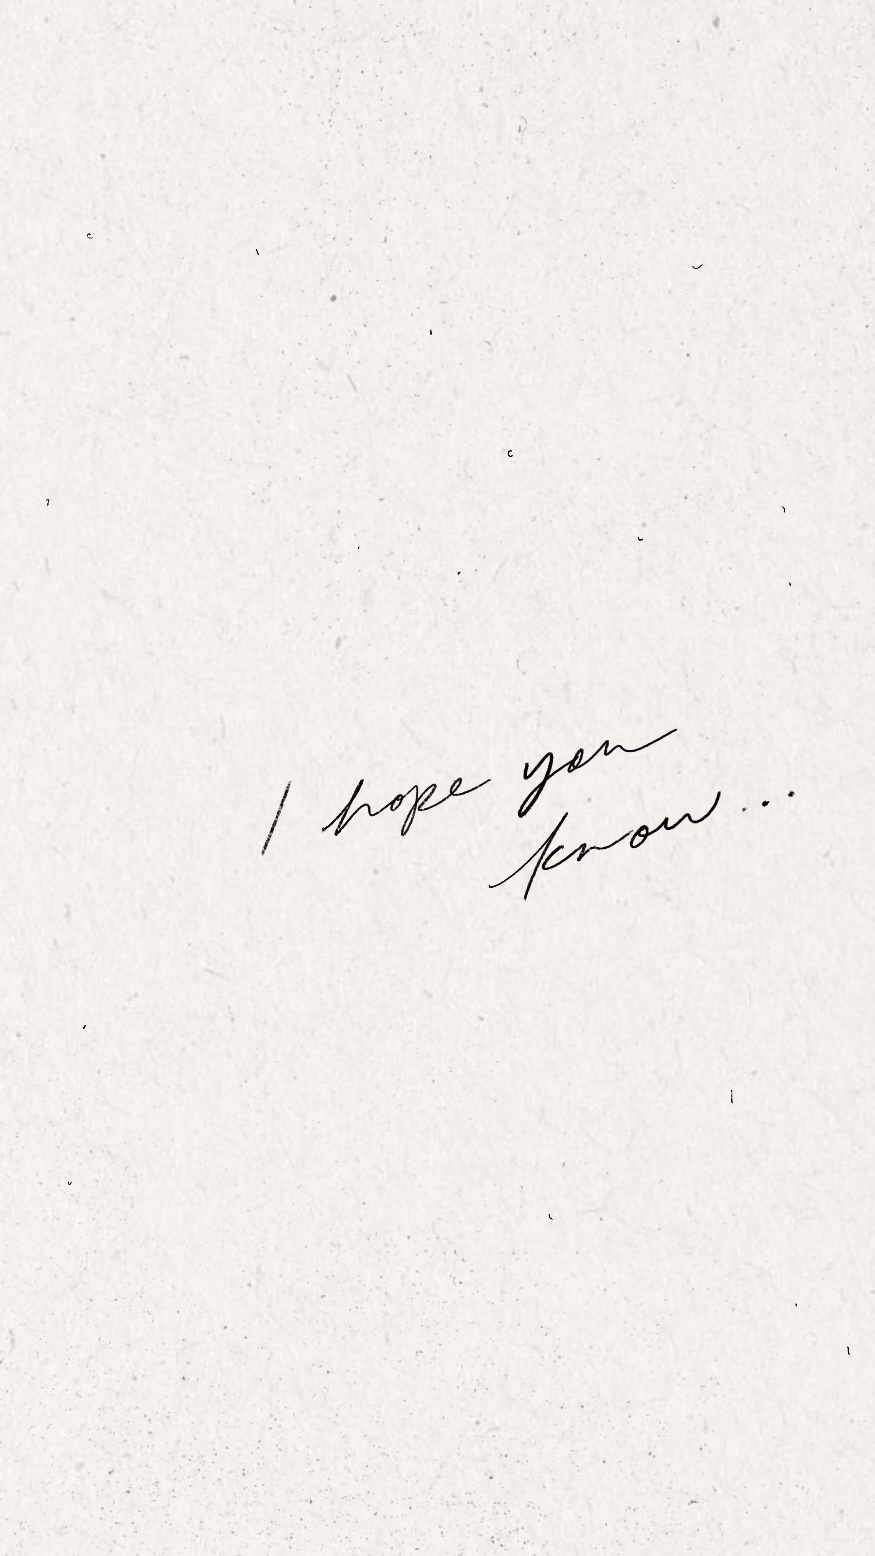 I hope you
know...